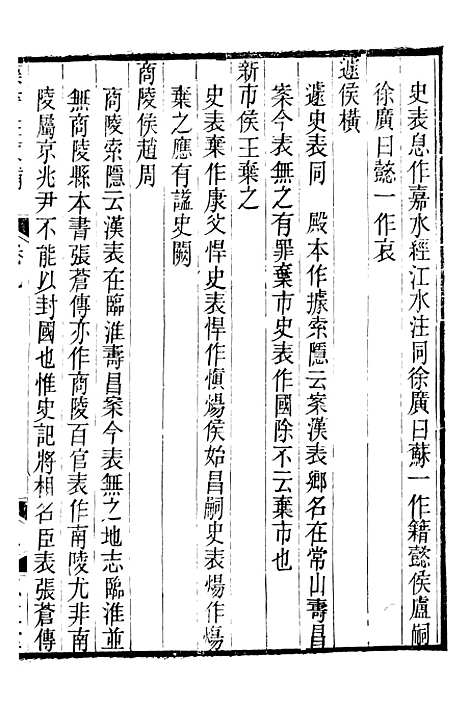 史表息作嘉水經江水注同徐廣曰蘇一作籍懿侯盧嗣
徐廣曰懿一作哀
遽侯橫
遽史表同　殿本作據索隱云案漢表鄉名在常山壽昌
案今表無之有罪棄市史表作國除不云棄市也
新市侯王棄之
史表棄作康父悍史表悍作愼煬侯始昌嗣史表煬作煬
棄之應有諡史闕
商陵侯趙周
商陵索隱云漢表在臨淮壽昌案今表無之地志臨淮並
無商陵縣本書張蒼傳亦作商陵百官表作南陵尤非南
陵屬京兆尹不能以封國也惟史記將相名臣表張蒼傳